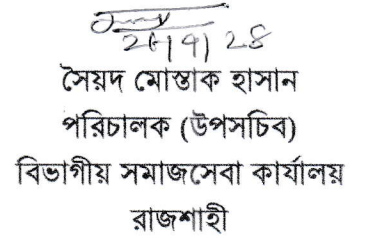 সৈয়দ মোস্তাক হাসান
পরিচালক (উপসচিব)
বিভাগীয় সমাজসেবা কার্যালয়
রাজশাহী